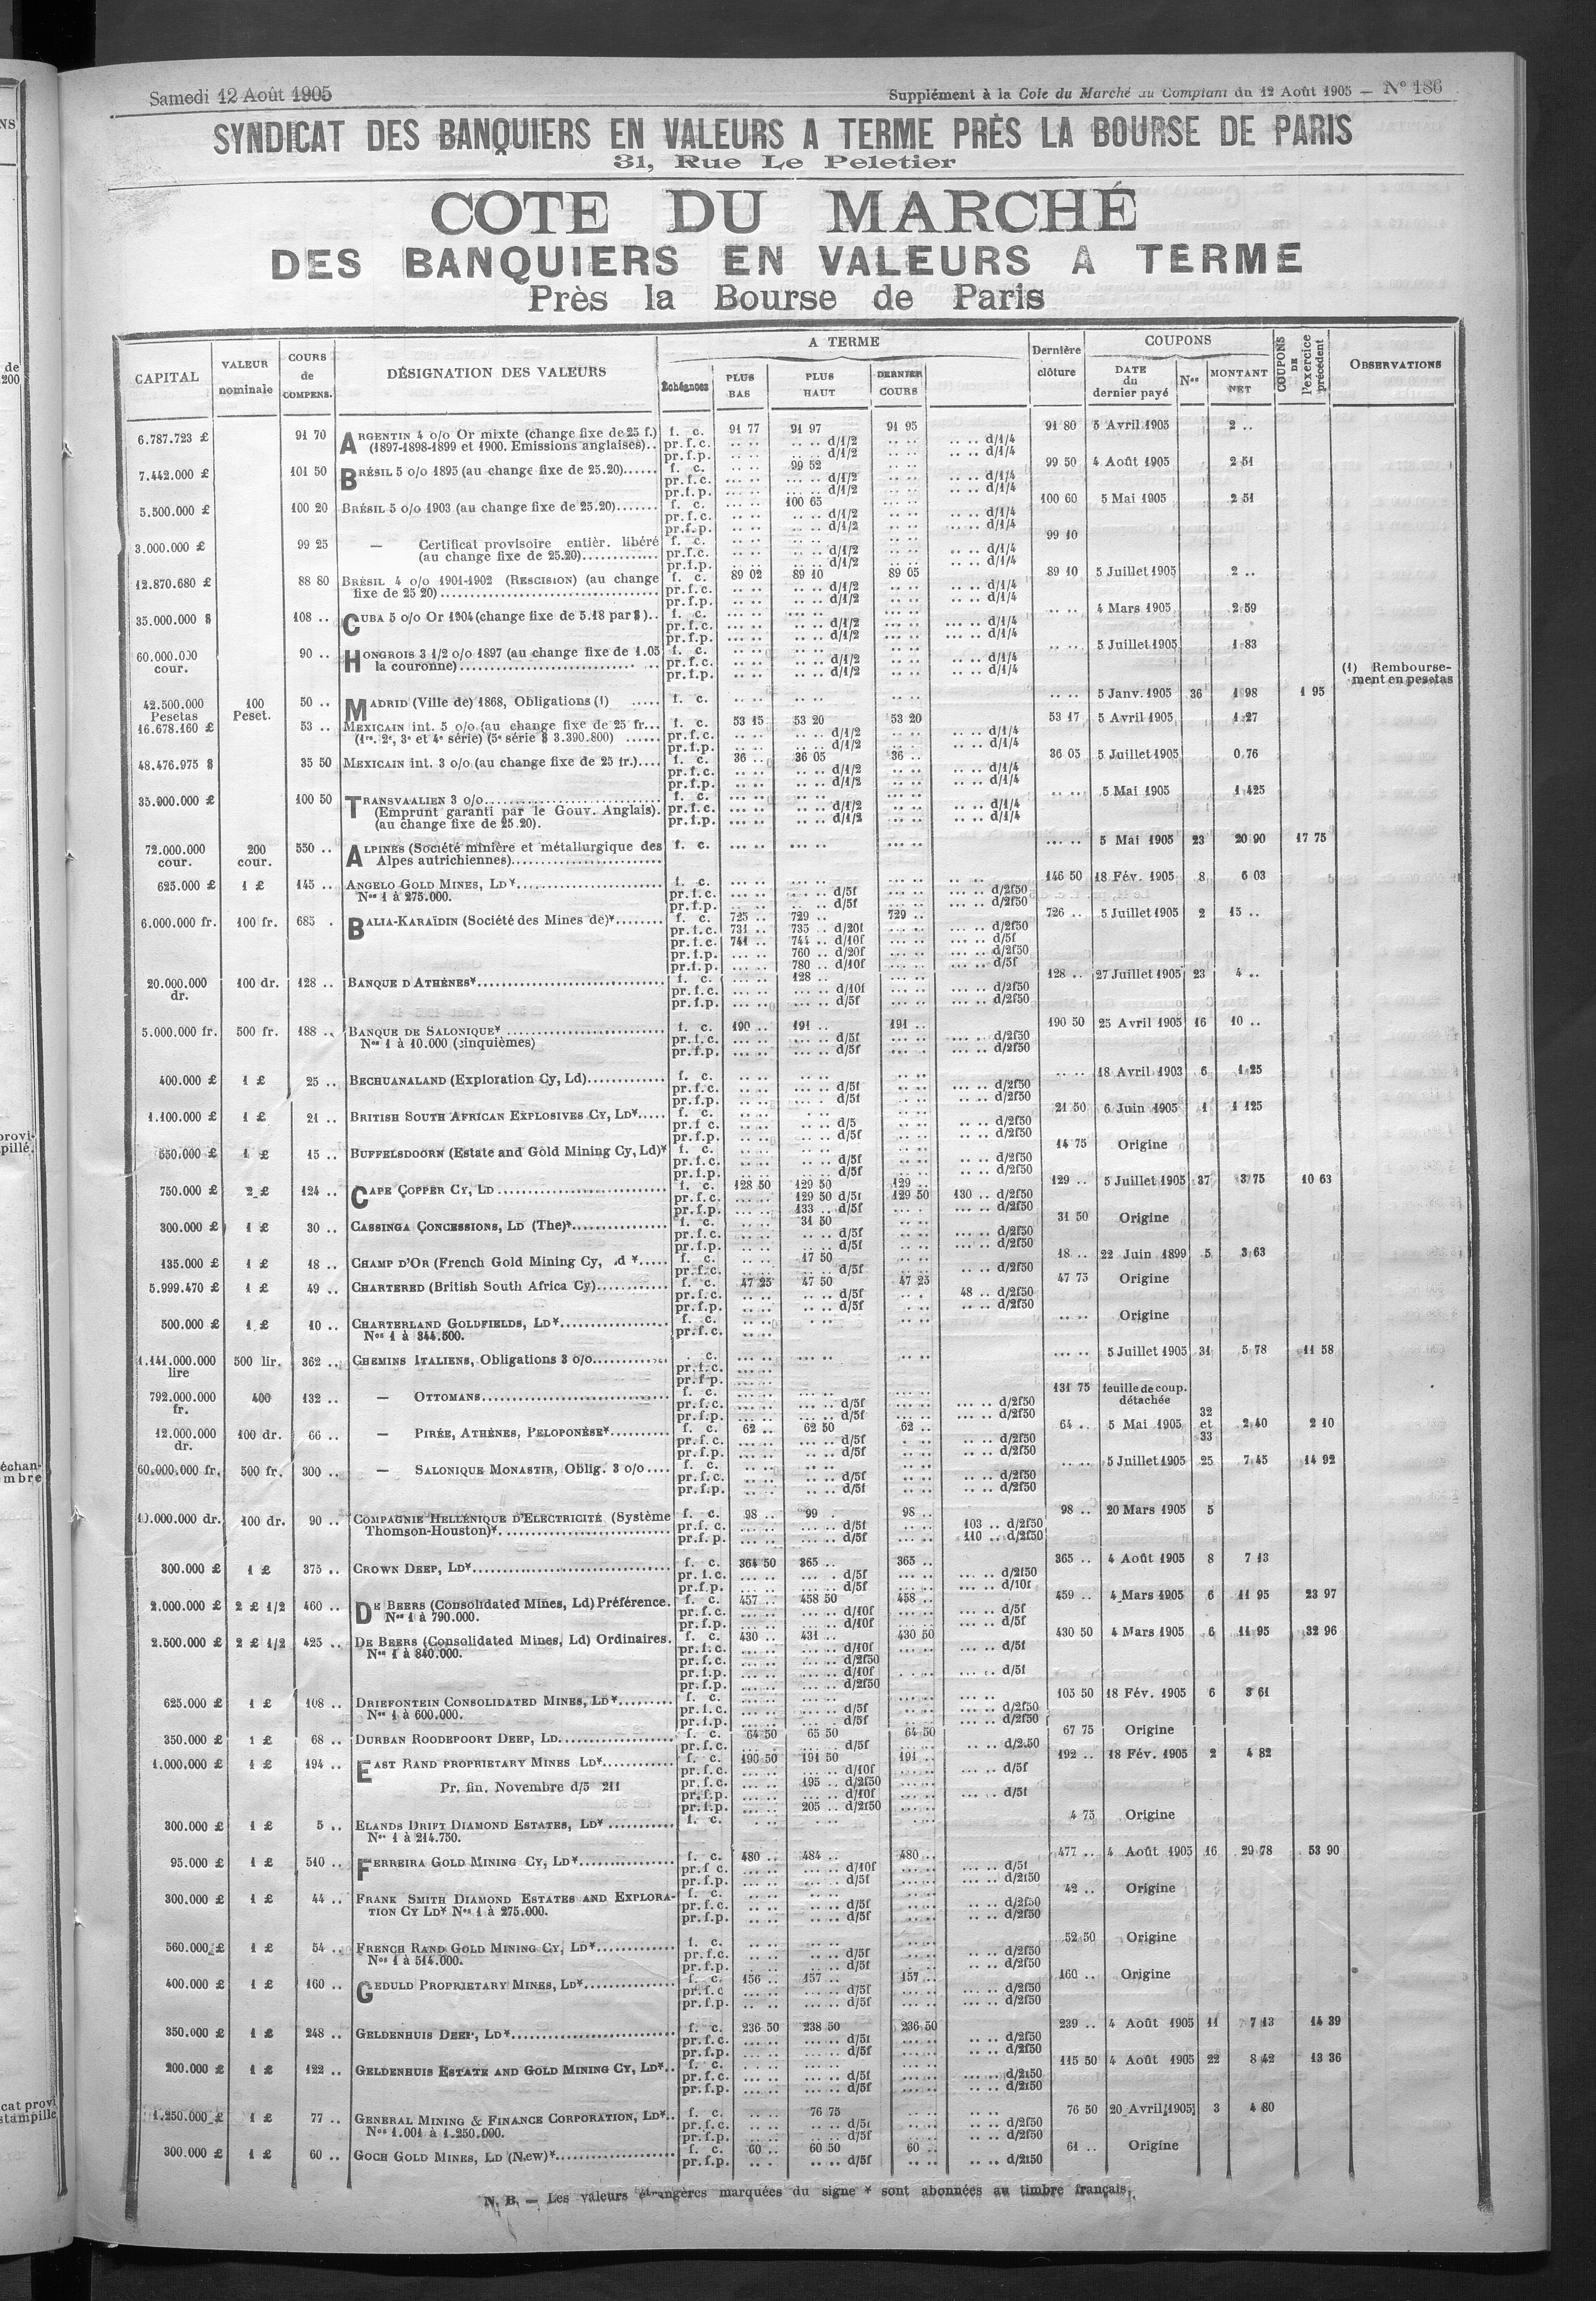 Samedi 12 Août 1905
Supplément à la Cote du Marché au Comptant du 12 Août 1905 — N° 186
SYNDICAT DES BANQUIERS EN VALEURS A TERME PRÈS LA BOURSE DE PARIS
31, Rue Le Peletier
COTE DU MARCHÉ
DES BANQUIERS EN VALEURS A TERME
Près la Bourse de Paris
CAPITAL VALEUR nominale COURS de COMPENS. DÉSIGNATION DES VALEURS A TERME Échéances PLUS BAS PLUS HAUT DERNIER COURS Dernière clôture COUPONS DATE du dernier payé Nos MONTANT NET COUPONS DE l'exercice précédent OBSERVATIONS
6.787.723 £ 91 70 ARGENTIN 4 o/o Or mixte (change fixe de 25 f.) f. c. 91 77 91 97 91 95 91 80 5 Avril 1905 2 ..
(1897-1898-1899 et 1900. Emissions anglaises).. pr.f.c. d/1/2 d/1/4
pr.f.p. d/1/2 d/1/4
7.442.000 £ 101 50 BRÉSIL 5 o/o 1895 (au change fixe de 25.20)...... f. c. 99 52 99 50 4 Août 1905 2 51
pr.f.c. d/1/2 d/1/4
pr.f.p. d/1/2 d/1/4
5.500.000 £ 100 20 BRÉSIL 5 o/o 1903 (au change fixe de 25.20)....... f. c. 100 65 100 60 5 Mai 1905 2 51
pr.f.c. d/1/2 d/1/4
pr.f.p. d/1/2 d/1/4
3.000.000 £ 99 25 — Certificat provisoire entièr. libéré f. c. 99 10
(au change fixe de 25.20)............. pr.f.c. d/1/2 d/1/4
pr.f.p. d/1/2 d/1/4
12.870.680 £ 88 80 BRÉSIL 4 o/o 1901-1902 (RESCISION) (au change f. c. 89 02 89 10 89 05 89 10 5 Juillet 1905 2 ..
fixe de 25 20) pr.f.c. d/1/2 d/1/4
pr.f.p. d/1/2 d/1/4
35.000.000 $ 108 .. CUBA 5 o/o Or 1904 (change fixe de 5.18 par $).. f. c. 4 Mars 1905 2 59
pr.f.c. d/1/2 d/1/4
pr.f.p. d/1/2 d/1/4
60.000.000 cour. 90 .. HONGROIS 3 1/2 o/o 1897 (au change fixe de 1.05 f. c. 5 Juillet 1905 1 83
la couronne) pr.f.c. d/1/2 d/1/4
pr.f.p. d/1/2 d/1/4
(1) Remboursement en pesetas
42.500.000 Pesetas 100 Peset. 50 .. MADRID (Ville de) 1868, Obligations (1) ..... f. c. 5 Janv. 1905 36 1 98 1 95
16.678.160 £ 53 .. MEXICAIN int. 5 o/o (au change fixe de 25 fr... f. c. 53 15 53 20 53 20 53 17 5 Avril 1905 1 27
(1re, 2e, 3e et 4e série) (5e série $ 3.390.800) ...... pr.f.c. d/1/2 d/1/4
pr.f.p. d/1/2 d/1/4
48.476.975 $ 35 50 MEXICAIN int. 3 o/o (au change fixe de 25 fr.).... f. c. 36 .. 36 05 36 .. 36 05 5 Juillet 1905 0 76
pr.f.c. d/1/2 d/1/4
pr.f.p. d/1/2 d/1/4
35.900.000 £ 100 50 TRANSVAALIEN 3 o/o f. c. 5 Mai 1905 1 425
(Emprunt garanti par le Gouv. Anglais). pr.f.c. d/1/2 d/1/4
(au change fixe de 25.20). pr.f.p. d/1/2 d/1/4
72.000.000 cour. 200 cour. 550 .. ALPINES (Société minière et métallurgique des f. c. 5 Mai 1905 23 20 90 17 75
Alpes autrichiennes)
625.000 £ 1 £ 145 .. ANGELO GOLD MINES, LD* f. c. 146 50 18 Fév. 1905 8 6 03
Nos 1 à 275.000. pr.f.c. d/5f d/2f50
pr.f.p. d/5f d/2f50
6.000.000 fr. 100 fr. 685 . BALIA-KARAÏDIN (Société des Mines de)* f. c. 725 .. 729 .. 729 .. 726 .. 5 Juillet 1905 2 15 ..
pr.f.c. 731 .. 735 .. d/20f d/2f50
pr.f.c. 741 .. 744 .. d/10f d/5f
pr.f.p. 760 .. d/20f d/2f50
pr.f.p. 780 .. d/10f d/5f
20.000.000 dr. 100 dr. 128 .. BANQUE D'ATHÈNES* f. c. 128 128 .. 27 Juillet 1905 23 4 ..
pr.f.c. d/10f d/2f50
pr.f.p. d/5f d/2f50
5.000.000 fr. 500 fr. 188 .. BANQUE DE SALONIQUE* f. c. 190 .. 191 .. 191 .. 190 50 25 Avril 1905 16 10 ..
Nos 1 à 10.000 (cinquièmes) pr.f.c. d/5f d/2f50
pr.f.p. d/5f d/2f50
400.000 £ 1 £ 25 .. BECHUANALAND (Exploration Cy, Ld) f. c. 18 Avril 1903 6 1 25
pr.f.c. d/5f d/2f50
pr.f.p. d/5f d/2f50
1.100.000 £ 1 £ 21 .. BRITISH SOUTH AFRICAN EXPLOSIVES CY, LD*..... f. c. 21 50 6 Juin 1905 1 1 125
pr.f c. d/5 d/2f50
pr.f.p. d/5f d/2f50
550.000 £ 1 £ 15 .. BUFFELSDOORN (Estate and Gold Mining Cy, Ld)* f. c. 14 75 Origine
pr.f.c. d/5f d/2f50
pr.f.p. d/5f d/2f50
750.000 £ 2 £ 124 .. CAPE COPPER CY, LD f. c. 128 50 129 50 129 .. 129 .. 5 Juillet 1905 37 3 75 10 63
pr.f.c. 129 50 d/5f 129 50 130 .. d/2f50
pr.f.p. 133 .. d/5f d/2f50
300.000 £ 1 £ 30 .. CASSINGA CONCESSIONS, LD (The)* f. c. 31 50 31 50 Origine
pr.f.c. d/5f d/2f50
pr.f.p. d/5f d/2f50
135.000 £ 1 £ 18 .. CHAMP D'OR (French Gold Mining Cy, .d *..... f. c. 17 50 18 .. 22 Juin 1899 5 3 63
pr.f.c. d/5f d/2f50
5.999.470 £ 1 £ 49 .. CHARTERED (British South Africa Cy) f. c. 47 25 47 50 47 25 47 75 Origine
pr.f.c. d/5f 48 .. d/2f50
pr.f.p. d/5f d/2f50
500.000 £ 1 £ 10 .. CHARTERLAND GOLDFIELDS, LD* f. c. Origine
Nos 1 à 344.500. pr.f.c.
1.141.000.000 lire 500 lir. 362 .. CHEMINS ITALIENS, Obligations 3 o/o . c. 5 Juillet 1905 31 5 78 11 58
pr.f.c.
pr.f.p.
792.000.000 fr. 400 132 .. — OTTOMANS f. c. 131 75 feuille de coup. détachée
pr.f.c. d/5f d/2f50
pr.f.p. d/5f d/2f50
12.000.000 dr. 100 dr. 66 .. — PIRÉE, ATHÈNES, PELOPONÈSE* f. c. 62 .. 62 50 62 .. 64 .. 5 Mai 1905 32 et 33 2 40 2 10
pr.f.c. d/5f d/2f50
pr.f.p. d/5f d/2f50
60.000.000 fr. 500 fr. 300 .. — SALONIQUE MONASTIR, Oblig. 3 o/o .... f. c. 5 Juillet 1905 25 7 45 14 92
pr.f.c. d/5f d/2f50
pr.f.p. d/5f d/2f50
10.000.000 dr. 100 dr. 90 .. COMPAGNIE HELLÉNIQUE D'ELECTRICITÉ (Système f. c. 98 .. 99 . 98 .. 98 .. 20 Mars 1905 5
Thomson-Houston)* pr.f.c. d/5f 103 .. d/2f50
pr.f.p. d/5f 110 .. d/2f50
300.000 £ 1 £ 375 .. CROWN DEEP, LD* f. c. 364 50 365 .. 365 .. 365 .. 4 Août 1905 8 7 13
pr.f.c. d/5f d/2f50
pr.f.p. d/5f d/10f
2.000.000 £ 2 £ 1/2 460 .. DE BEERS (Consolidated Mines, Ld) Préférence. f. c. 457 .. 458 50 458 .. 459 .. 4 Mars 1905 6 11 95 23 97
Nos 1 à 790.000. pr.f.c. d/10f d/5f
pr.f.p. d/10f d/5f
2.500.000 £ 2 £ 1/2 425 .. DE BEERS (Consolidated Mines, Ld) Ordinaires. f. c. 430 .. 431 .. 430 50 430 50 4 Mars 1905 6 11 95 32 96
Nos 1 à 840.000. pr.f.c. d/10f d/5f
pr.f.c. d/2f50
pr.f.p. d/10f d/5f
pr.f.p. d/2f50
625.000 £ 1 £ 108 .. DRIEFONTEIN CONSOLIDATED MINES, LD* f. c. 105 50 18 Fév. 1905 6 3 61
Nos 1 à 600.000. pr.f.c. d/5f d/2f50
pr.f.p. d/5f d/2f50
350.000 £ 1 £ 68 .. DURBAN ROODEPOORT DEEP, LD f. c. 64 50 65 50 64 50 67 75 Origine
pr.f.c. d/5f d/2.50
1.000.000 £ 1 £ 194 .. EAST RAND PROPRIETARY MINES LD* f. c. 190 50 191 50 191 .. 192 .. 18 Fév. 1905 2 4 82
pr.f.c. d/10f d/5f
Pr. fin. Novembre d/5 211 pr.f.c. 195 .. d/2f50
pr.f.p. d/10f d/5f
pr.f.p. 205 .. d/2f50
300.000 £ 1 £ 5 .. ELANDS DRIFT DIAMOND ESTATES, LD* f. c. 4 75 Origine
Nos 1 à 214.750.
95.000 £ 1 £ 510 .. FERREIRA GOLD MINING CY, LD* f. c. 480 .. 484 .. 480 .. 477 .. 4 Août 1905 16 29 78 53 90
pr.f c. d/10f d/5f
pr.f.p. d/5f d/2f50
300.000 £ 1 £ 44 .. FRANK SMITH DIAMOND ESTATES AND EXPLORA- f. c. 42 .. Origine
TION CY LD* Nos 1 à 275.000. pr.f.c. d/5f d/2f50
pr.f.p. d/5f d/2f50
560.000 £ 1 £ 54 .. FRENCH RAND GOLD MINING CY, LD* f. c. 52 50 Origine
Nos 1 à 514.000. pr.f.c. d/5f d/2f50
pr.f.p. d/5f d/2f50
400.000 £ 1 £ 160 .. GEDULD PROPRIETARY MINES, LD* f. c. 156 .. 157 .. 157 .. 160 .. Origine
pr.f.c d/5f d/2f50
pr.f.p. d/5f d/2f50
350.000 £ 1 £ 248 .. GELDENHUIS DEEP, LD* f. c. 236 50 238 50 236 50 239 .. 4 Août 1905 11 7 13 14 39
pr.f.c. d/5f d/2f50
pr.f.p. d/5f d/2f50
200.000 £ 1 £ 122 .. GELDENHUIS ESTATE AND GOLD MINING CY, LD*.. f. c. 115 50 4 Août 1905 22 8 42 13 36
pr.f.c. d/5f d/2f50
pr.f.p. d/5f d/2f50
1.250.000 £ 1 £ 77 .. GENERAL MINING & FINANCE CORPORATION, LD*.. f. c. 76 75 76 50 20 Avril 1905 3 4 80
Nos 1.001 à 1.250.000. pr.f.c. d/5f d/2f50
pr.f.p. d/5f d/2f50
300.000 £ 1 £ 60 .. GOCH GOLD MINES, LD (New)* f. c. 60 .. 60 50 60 .. 61 .. Origine
pr.f.p. d/5f d/2f50
N. B. — Les valeurs étrangères marquées du signe * sont abonnées au timbre français.